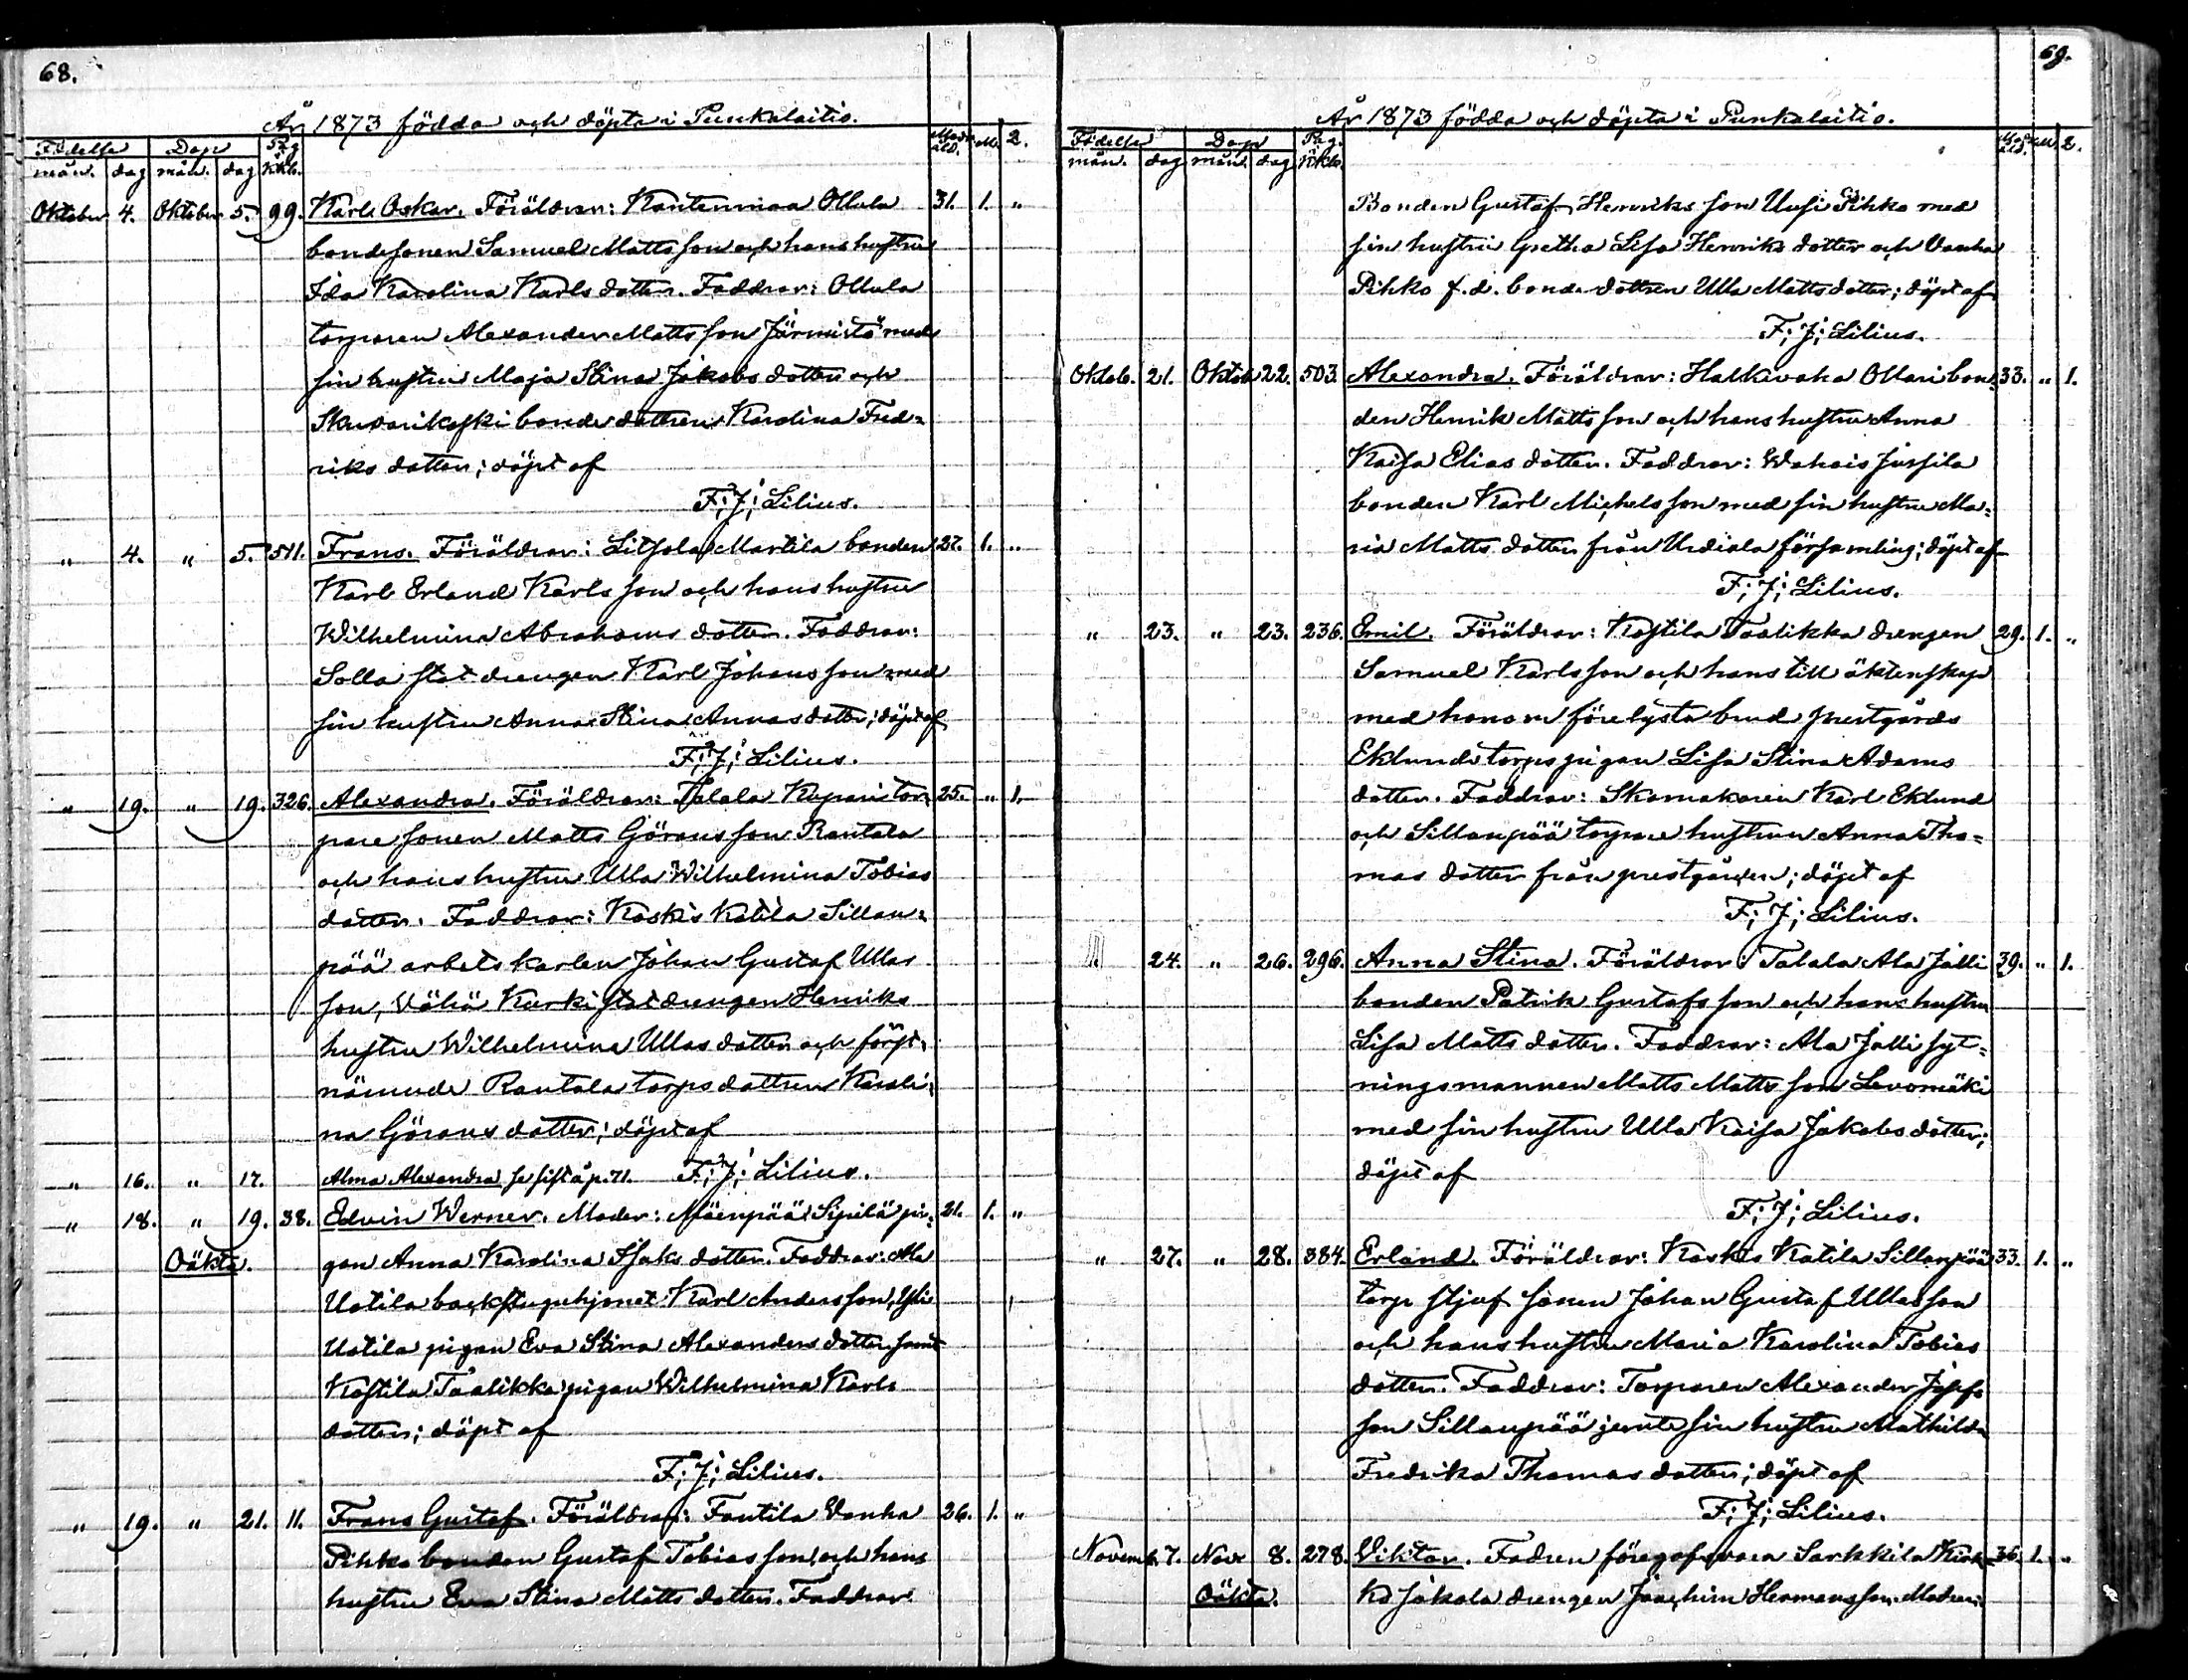 68.
År 1873 födda och döpta i Punkalaitio.
Födelse Dop Pag. i Kkb. Modr. åld. M. 2.
mån. dag mån. dag
Oktober 4. Oktober 5. 99. Karl Oskar. Föräldrar: Kantenmaa Ollula 31. 1. "
bondesonen Samuel Matts son och hans hustru
Ida Karolina Karls dotter. Faddrar: Ollula
torparen Alexander Matts son Järmistö med
sin hustru Maja Stina Jakobs dotter och
bonde dottren Karolina Fred-
riks dotter; döpt af
F. J. Lilius.
" 4. " 5. 511. Frans. Föräldrar: Litsola Martila bonden 27. 1. "
Karl Erland Karls son och hans hustru
Wilhelmina Abrahams dotter. Faddrar:
Solla stat drengen Karl Johans son med
sin hustru Anna Stina Annas dotter; döpt af
F. J. Lilius.
" 19. " 19. 326. Alexandra. Föräldrar: Talala Kupari tor- 25. " 1.
pare sonen Matts Görans son Rantala
och hans hustru Ulla Wilhelmina Tobias
dotter. Faddrar: Koskis Katila Sillan-
pää arbetskarlen Johan Gustaf Ullas
son, Vähä Kurki statdrengen Henriks
hustru Wilhelmina Ullas dotter och först-
nämnde Rantala torps dottren Karoli-
na Görans dotter; döpt af
" 16. " 17. Alma Alexandra, se sist å p. 71. F. J. Lilius.
" 18. " 19. 38. Edvin Werner. Moder: Mäenpää Sipilä pi- 21. 1. "
Oäkta. gan Anna Karolina Isaks dotter. Faddrar: Ala
Uotila backstuguhjonet Karl Anders son, Yli
Uotila pigan Eva Stina Alexanders dotter samt
Kostila Taalikka pigan Wilhelmina Karls
dotter; döpt af
F. J. Lilius.
" 19. " 21. 11. Frans Gustaf. Föräldrar: Fantila Vanha 26. 1. "
Pihko bonden Gustaf Tobias son och hans
hustru Eva Stina Matts dotter. Faddrar:
69.
År 1873 födda och döpta i Punkalaitio.
Födelse Dop Pag. i Kkb. Modr. åld. M. 2.
mån. dag mån. dag
Bonden Gustaf Henriks son Uusi Pihko med
sin hustru Gretha Lisa Henriks dotter och Vanha
Pihko f. d. bonde dottren Ulla Matts dotter; döpt af
F. J. Lilius.
Oktob. 21. Oktob. 22. 503. Alexandra. Föräldrar: Halkivaha Ollari bon- 33. " 1.
den Henrik Matts son och hans hustru Anna
Kaisa Elias dotter. Faddrar: Wahais Jussila
bonden Karl Michels son med sin hustru Ma-
ria Matts dotter från Urdiala församling; döpt af
F. J. Lilius.
" 23. " 23. 236. Emil. Föräldrar: Kostila Taalikka drengen 29. 1. "
Samuel Karls son och hans till äktenskap
med honom förelysta brud prestgårds
Eklunds torps pigan Lisa Stina Adams
dotter. Faddrar: Skomakaren Karl Eklund
och Sillanpää torpare hustrun Anna Tho-
mas dotter från prestgården; döpt af
F. J. Lilius.
" 24. " 26. 296. Anna Stina. Föräldrar: Talala Ala Jalli 39. " 1.
bonden Patrik Gustafs son och hans hustru
Lisa Matts dotter. Faddrar: Ala Jalli syt-
ningsmannen Matts Matts son Levomäki
med sin hustru Ulla Kaisa Jakobs dotter;
döpt af
F. J. Lilius.
" 27. " 28. 384. Erland. Föräldrar: Koskis Katila Sillanpää 33. 1. "
torp stjuf sonen Johan Gustaf Ullas son
och hans hustru Maria Karolina Tobias
dotter. Faddrar: Torparen Alexander Josefs
son Sillanpää jemte sin hustru Mathilda
Fredrika Thomas dotter; döpt af
F. J. Lilius.
Novemb. 7. Nov. 8. 278. Viktor. Fadren föregafs vara Sarkkila 36. 1. "
Oäkta. Jakola drengen Joachim Hermans son. Modren: